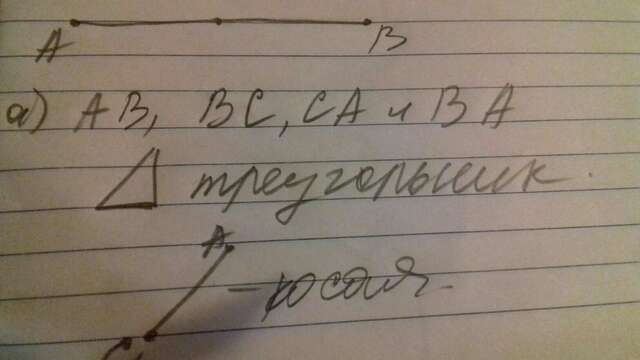 A B
а) AB, BC, CA и BA
треугольник.
A
- косая.